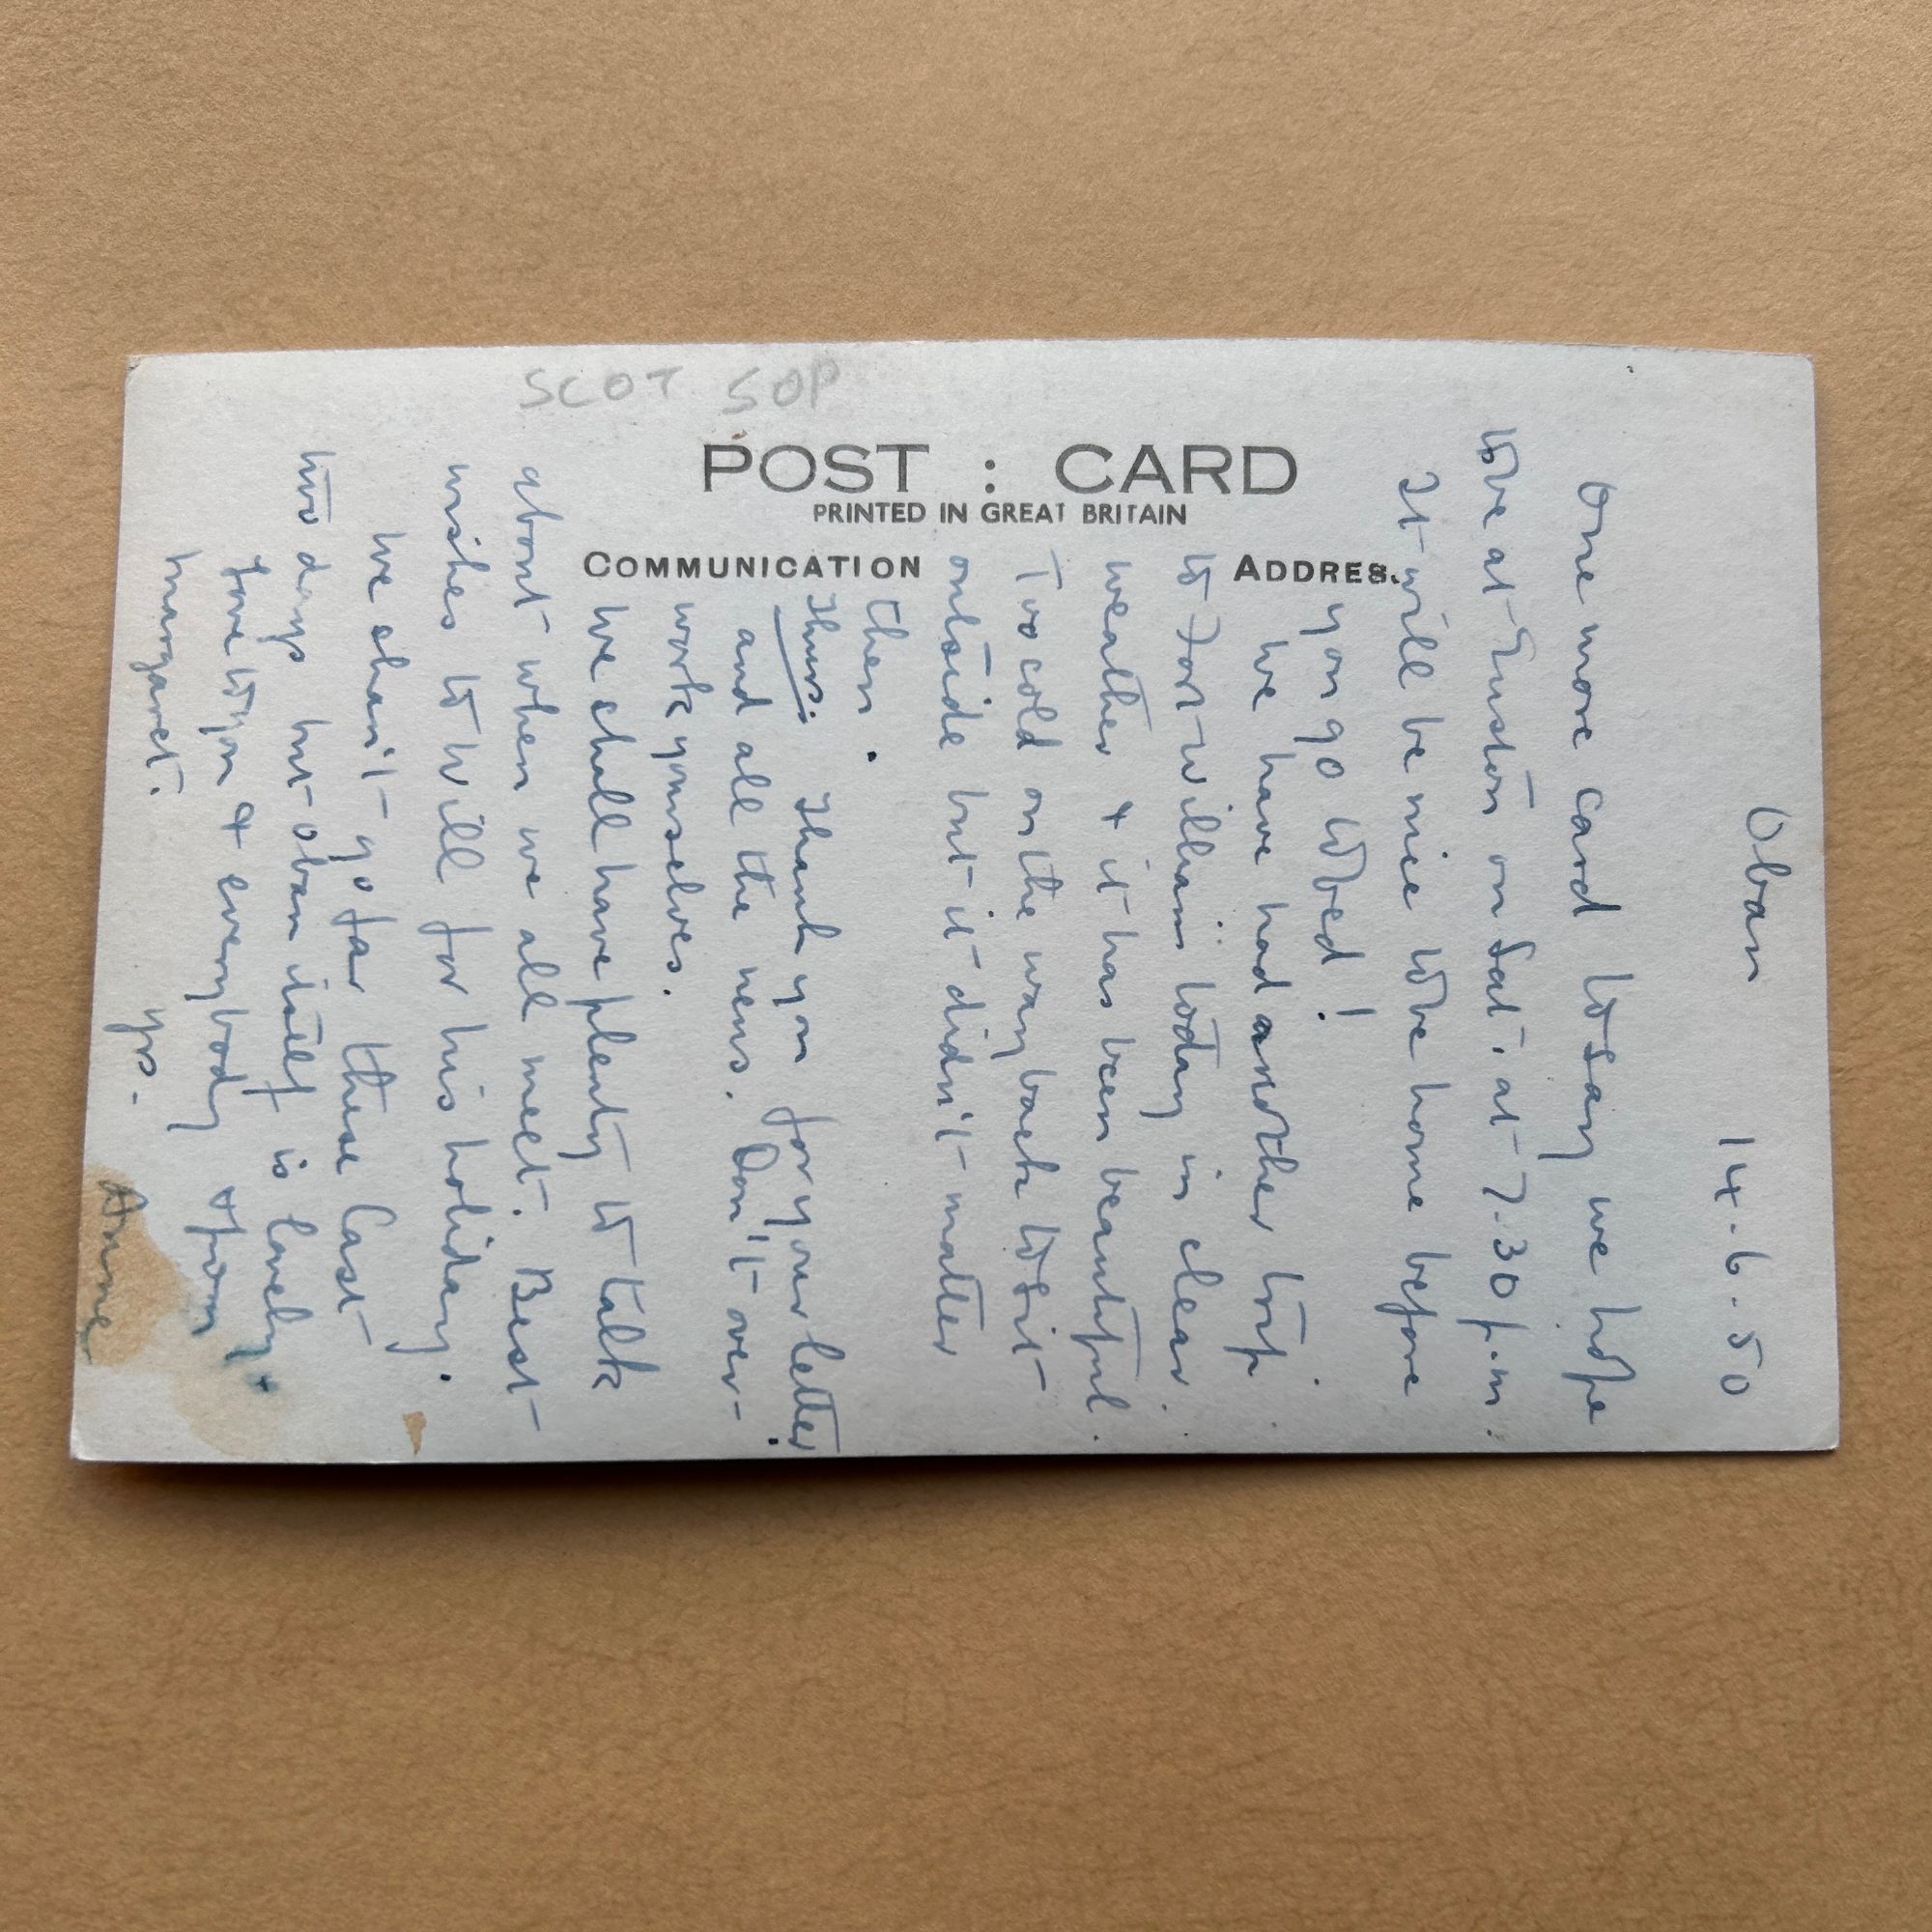 SCOT 50P
POST : CARD
PRINTED IN GREAT BRITAIN
COMMUNICATION
ADDRESS
Oban 14.6.50
One more card to say we hope
to be at Euston on Sat. at 7.30 p.m.
It will be nice to be home before
you go to bed!
We have had another trip
to Fort William today in clear
weather & it has been beautiful.
Too cold on the way back to sit
outside but it didn't matter
then.
Thurs: Thank you for your letter
and all the news. Don't over-
work yourselves.
We shall have plenty to talk
about when we all meet. Best
wishes to Will for his holiday.
We shan't go far these last
two days but Oban itself is lovely.
Love to you & everybody & from
Margaret.
Yrs. Annie